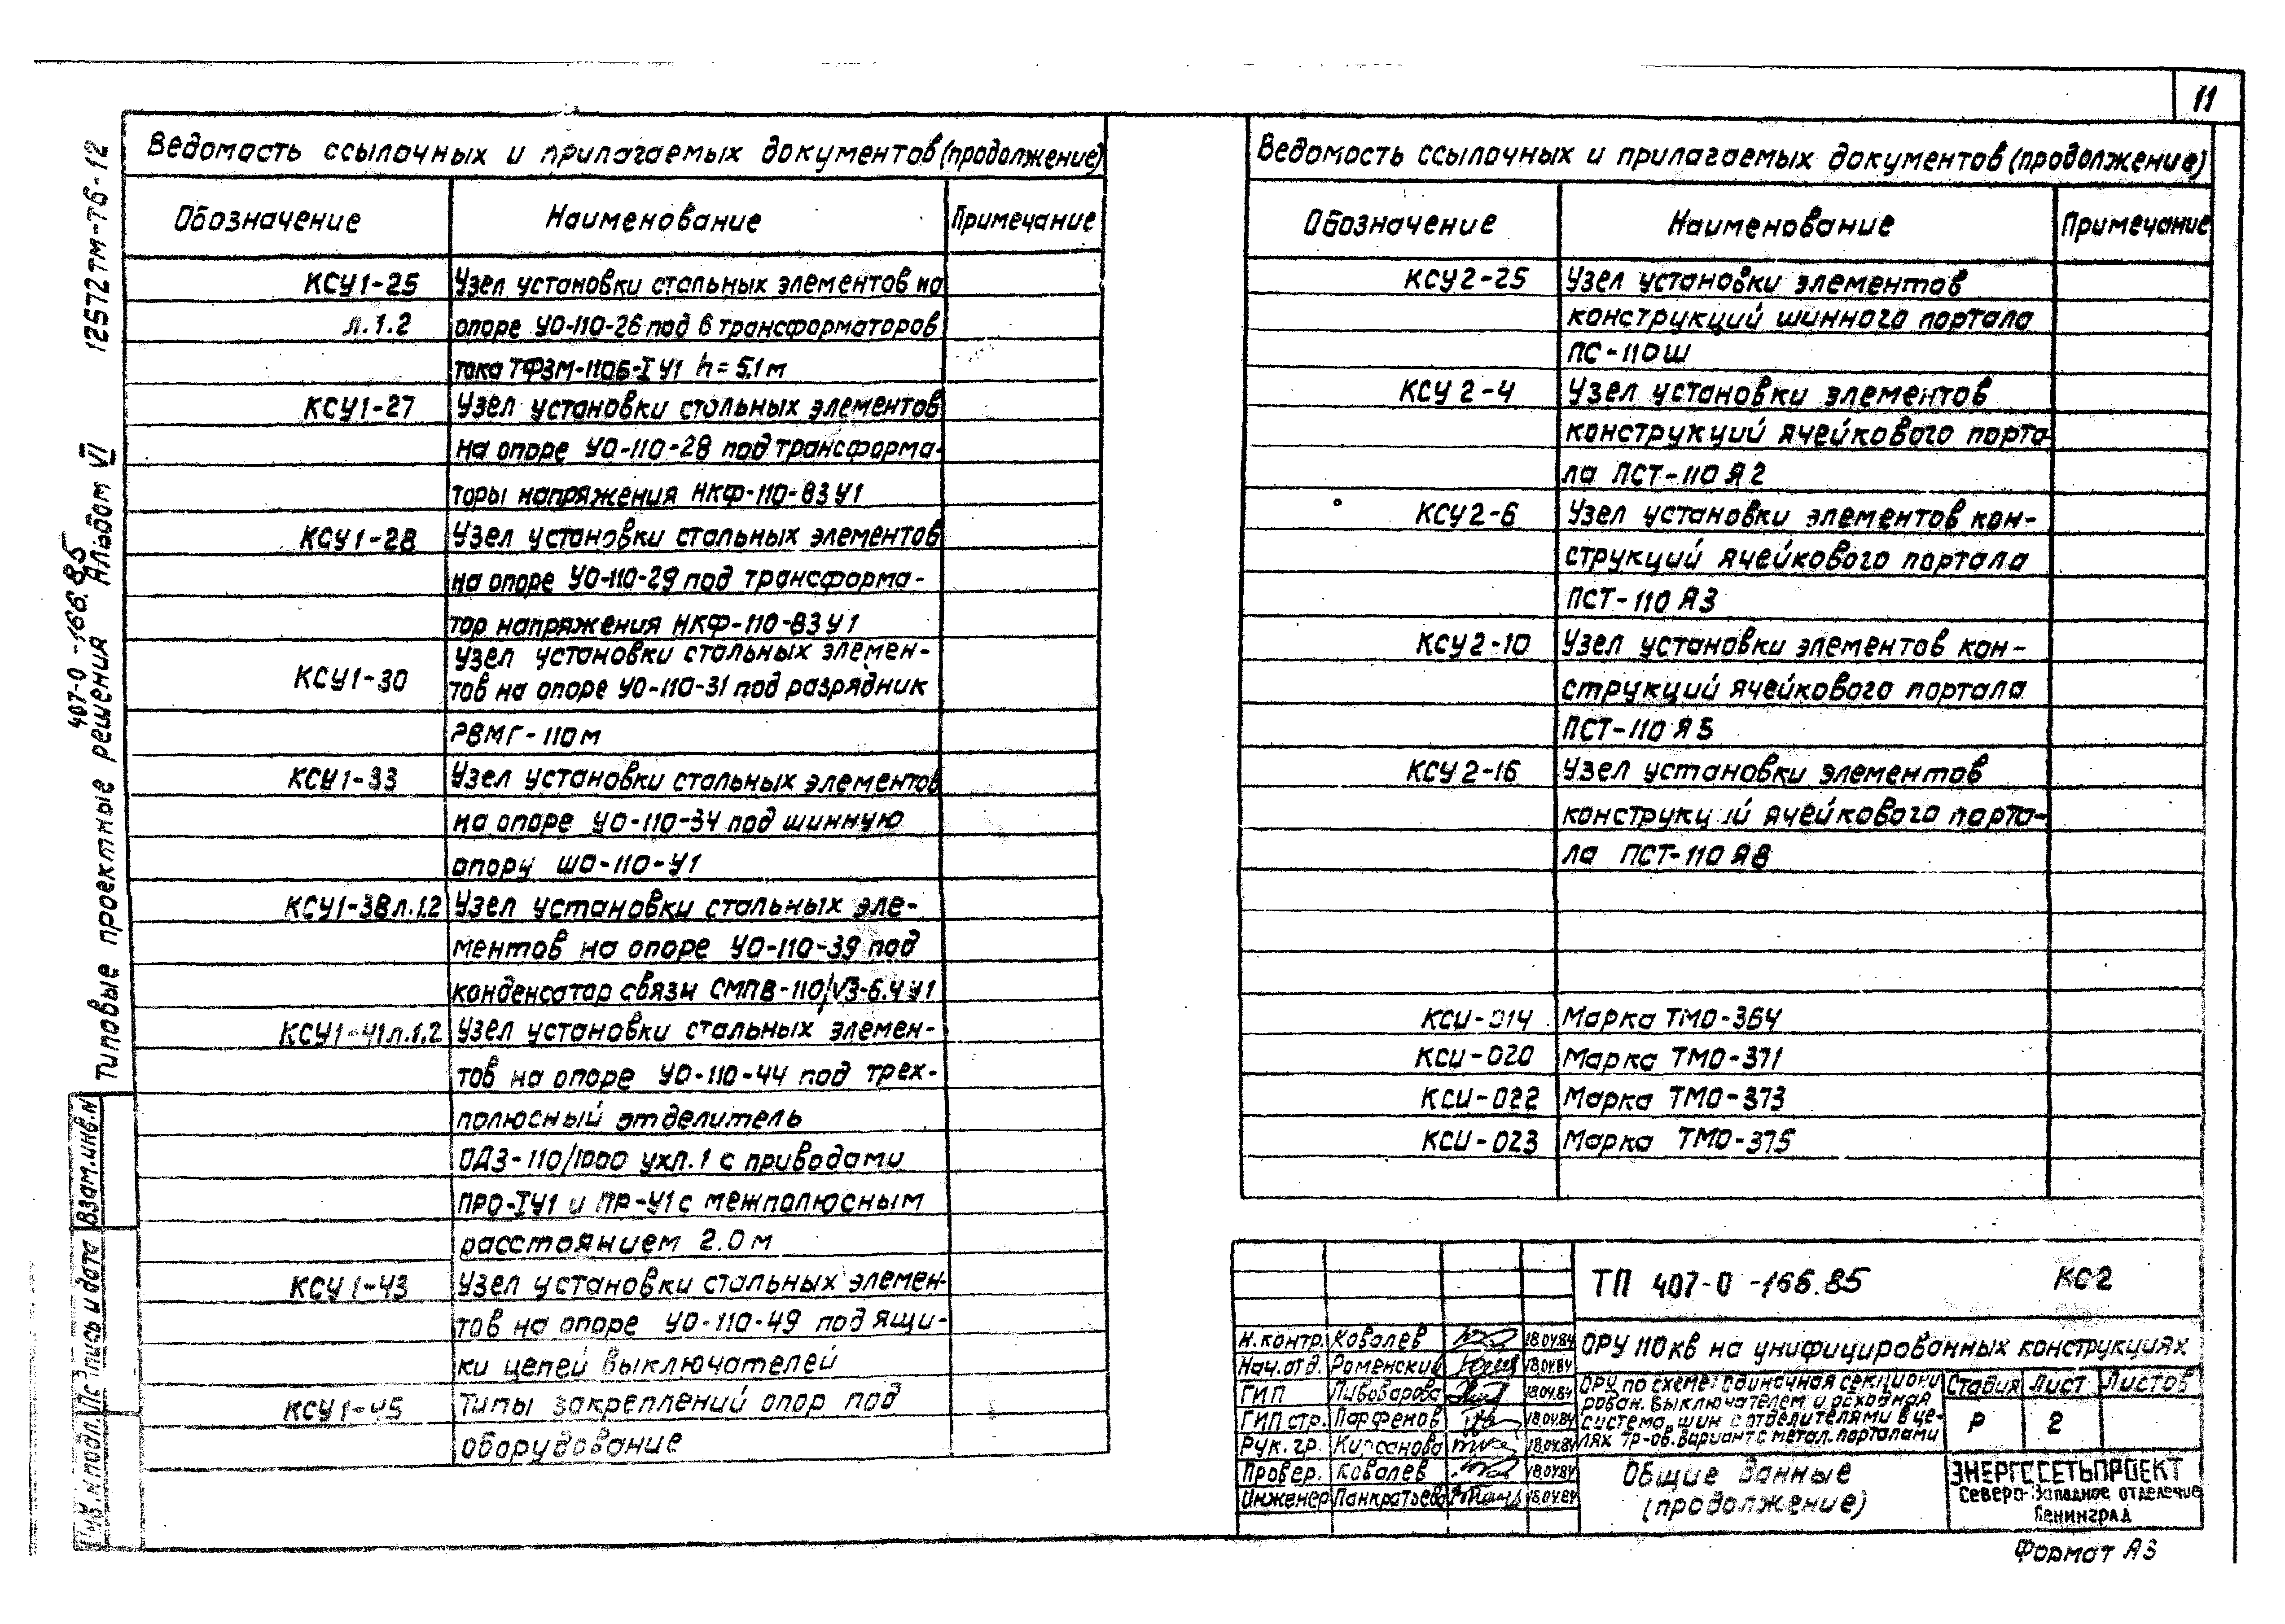 11
12572тм-т6-12
407-0-166.85
Типовые проектные решения Альбом VI
Взам.инв.N
Подпись и дата
Инв.N подл.
Ведомость ссылочных и прилагаемых документов (продолжение)
Обозначение Наименование Примечание
КСУ1-25 Узел установки стальных элементов на
л.1.2 опоре УО-110-26 под 6 трансформаторов
тока ТФЗМ-110Б-I У1 h=5.1м
КСУ1-27 Узел установки стальных элементов
на опоре УО-110-28 под трансформа-
торы напряжения НКФ-110-83У1
КСУ1-28 Узел установки стальных элементов
на опоре УО-110-29 под трансформа-
тор напряжения НКФ-110-83У1
Узел установки стальных элемен-
КСУ1-30 тов на опоре УО-110-31 под разрядник
РВМГ-110м
КСУ1-33 Узел установки стальных элементов
на опоре УО-110-34 под шинную
опору ШО-110-У1
КСУ1-38л.1.2 Узел установки стальных эле-
ментов на опоре УО-110-39 под
конденсатор связи СМПВ-110/√3-6.4У1
КСУ1-41л.1.2 Узел установки стальных элемен-
тов на опоре УО-110-44 под трех-
полюсный отделитель
ОДЗ-110/1000 ухл.1 с приводами
ПРО-IУ1 и ПР-У1 с межполюсным
расстоянием 2.0м
КСУ1-43 Узел установки стальных элемен-
тов на опоре УО-110-49 под ящи-
ки цепей выключателей
КСУ1-45 Типы закреплений опор под
оборудование
Ведомость ссылочных и прилагаемых документов (продолжение)
Обозначение Наименование Примечание
КСУ2-25 Узел установки элементов
конструкций шинного портала
ПС-110Ш
КСУ2-4 Узел установки элементов
конструкций ячейкового порта-
ла ПСТ-110Я2
КСУ2-6 Узел установки элементов кон-
струкций ячейкового портала
ПСТ-110Я3
КСУ2-10 Узел установки элементов кон-
струкций ячейкового портала
ПСТ-110Я5
КСУ2-16 Узел установки элементов
конструкций ячейкового порта-
ла ПСТ-110Я8
КСИ-014 Марка ТМО-364
КСИ-020 Марка ТМО-371
КСИ-022 Марка ТМО-373
КСИ-023 Марка ТМО-375
ТП 407-0-166.85 КС2
Н.контр. Ковалев 18.04.84
Нач.отд. Роменский 18.04.84
ГИП Пивоварова 18.04.84
ГИП стр. Парфенов 18.04.84
Рук.гр. Кирсанова 18.04.84
Провер. Ковалев 18.04.84
Инженер Панкратьева 18.04.84
ОРУ 110кв на унифицированных конструкциях
ОРУ по схеме: одиночная секциони
рован. выключателем и обходная
система шин с отделителями в це-
лях тр-ов. вариант с метал. порталами
Стадия Лист Листов
Р 2
Общие данные
(продолжение)
ЭНЕРГОСЕТЬПРОЕКТ
Северо-Западное отделение
Ленинград
Формат А3